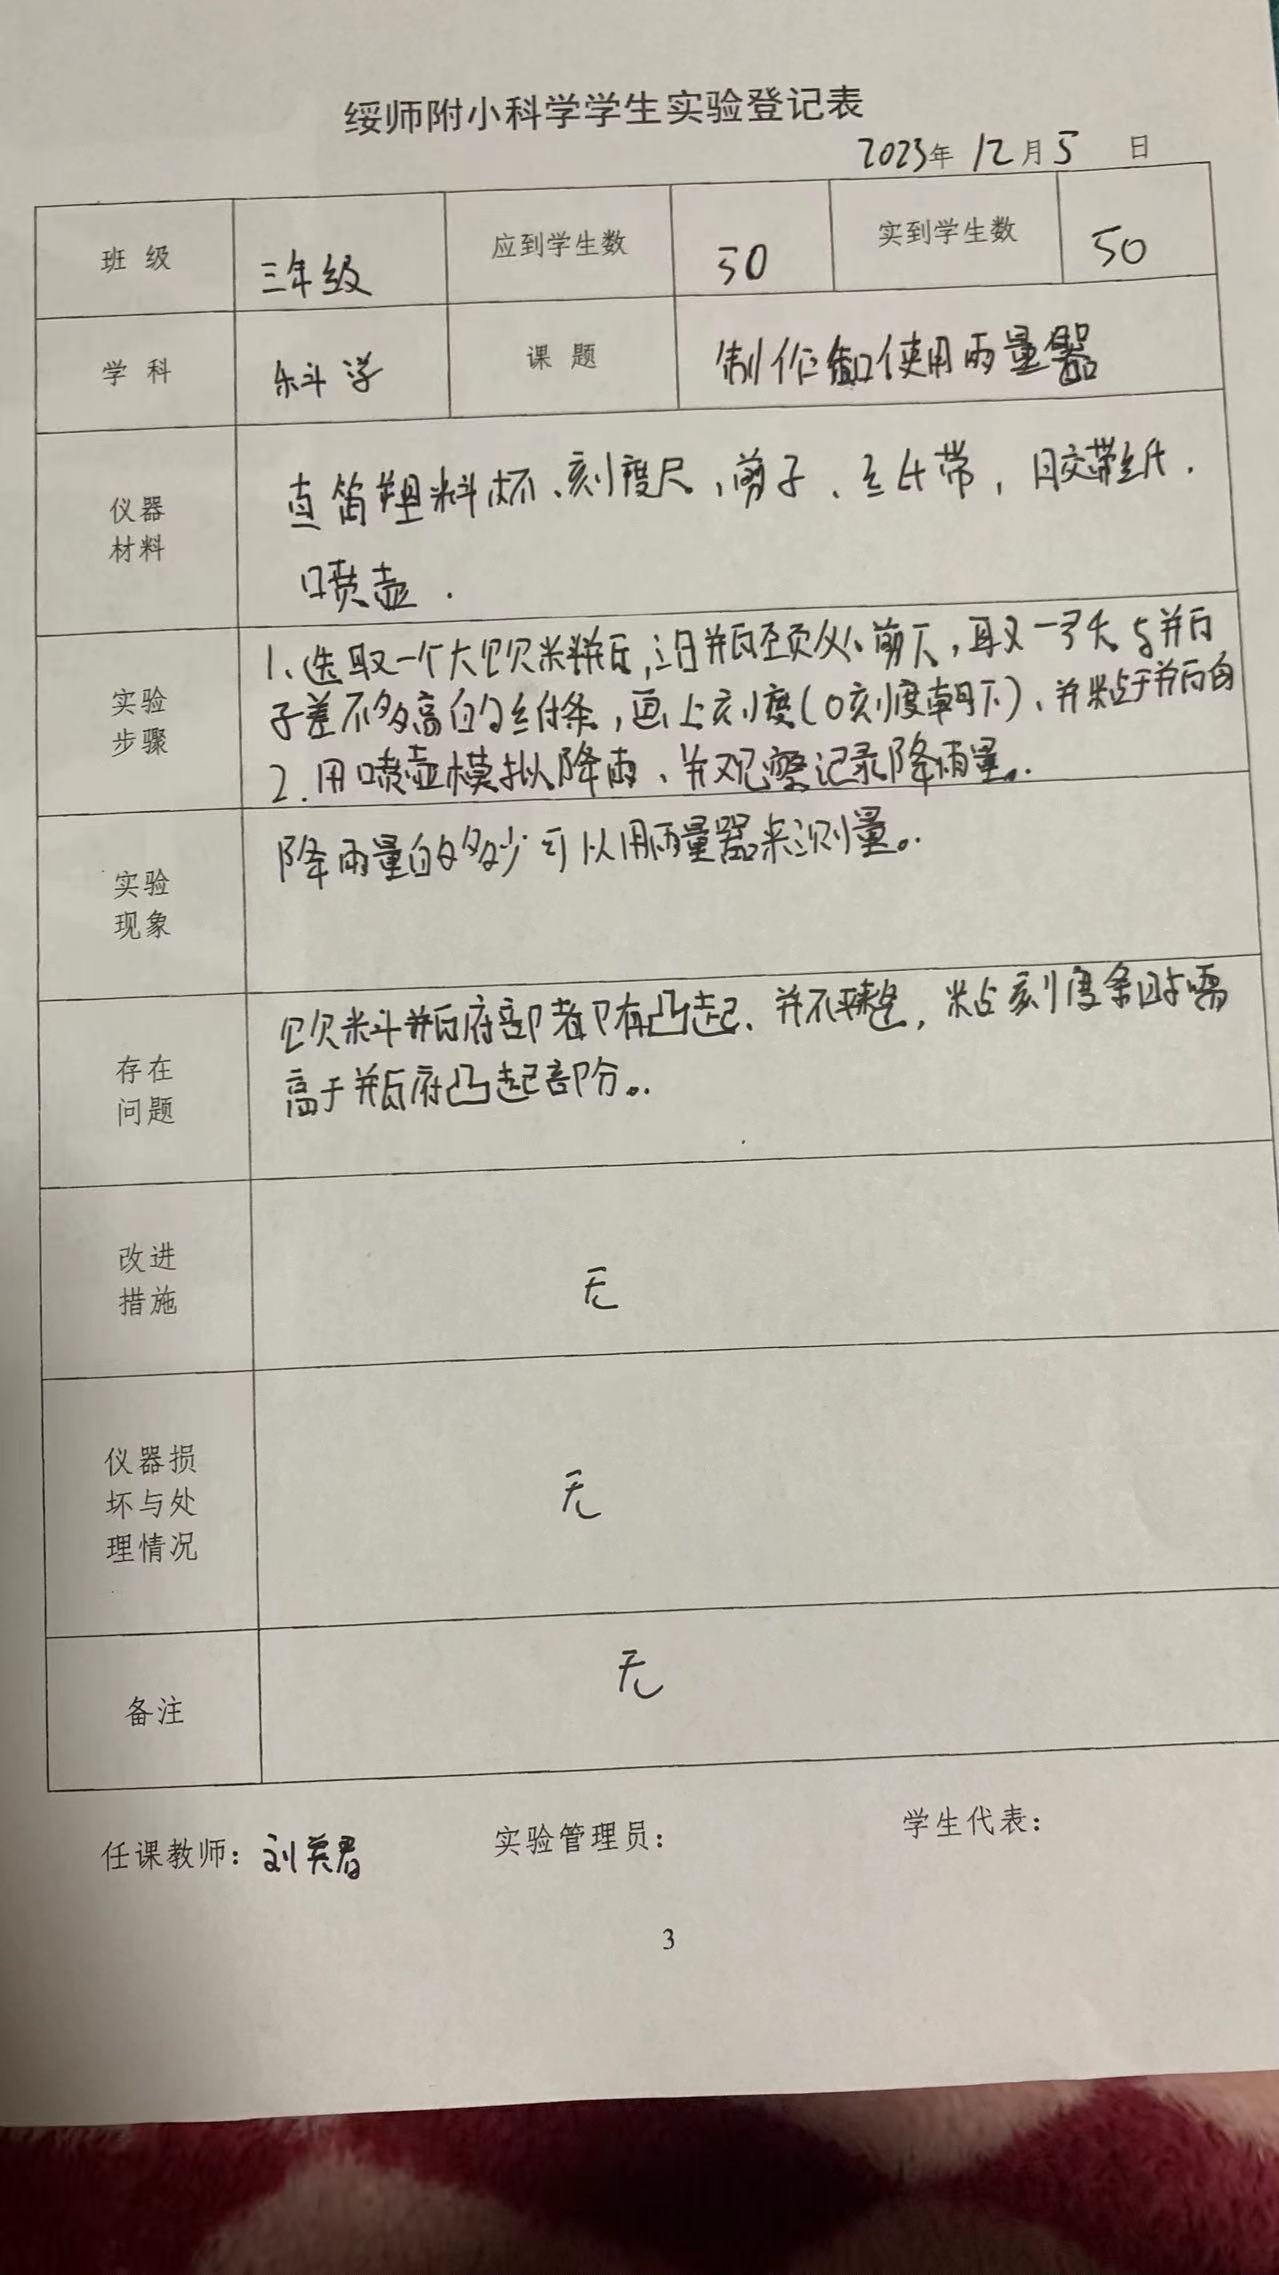 绥师附小科学学生实验登记表
2023年 12月5 日
班 级 三年级 应到学生数 50 实到学生数 50
学 科 科学 课 题 制作和使用雨量器
仪器
材料
直筒塑料杯、刻度尺,剪子、纸带,胶带纸.
喷壶.
实验
步骤
1、选取一个大饮料瓶,沿瓶颈处剪下,取一条与瓶
子差不多高的纸条,画上刻度(0刻度朝下)、并粘于瓶
2.用喷壶模拟降雨、并观察记录降雨量。
实验
现象
降雨量的多少可以用雨量器来测量。
存在
问题
饮料瓶底部都有凸起、并不平整,粘刻度条时需
高于瓶底凸起部分。
改进
措施
无
仪器损
坏与处
理情况
无
备注
无
任课教师:刘英君 实验管理员: 学生代表:
3